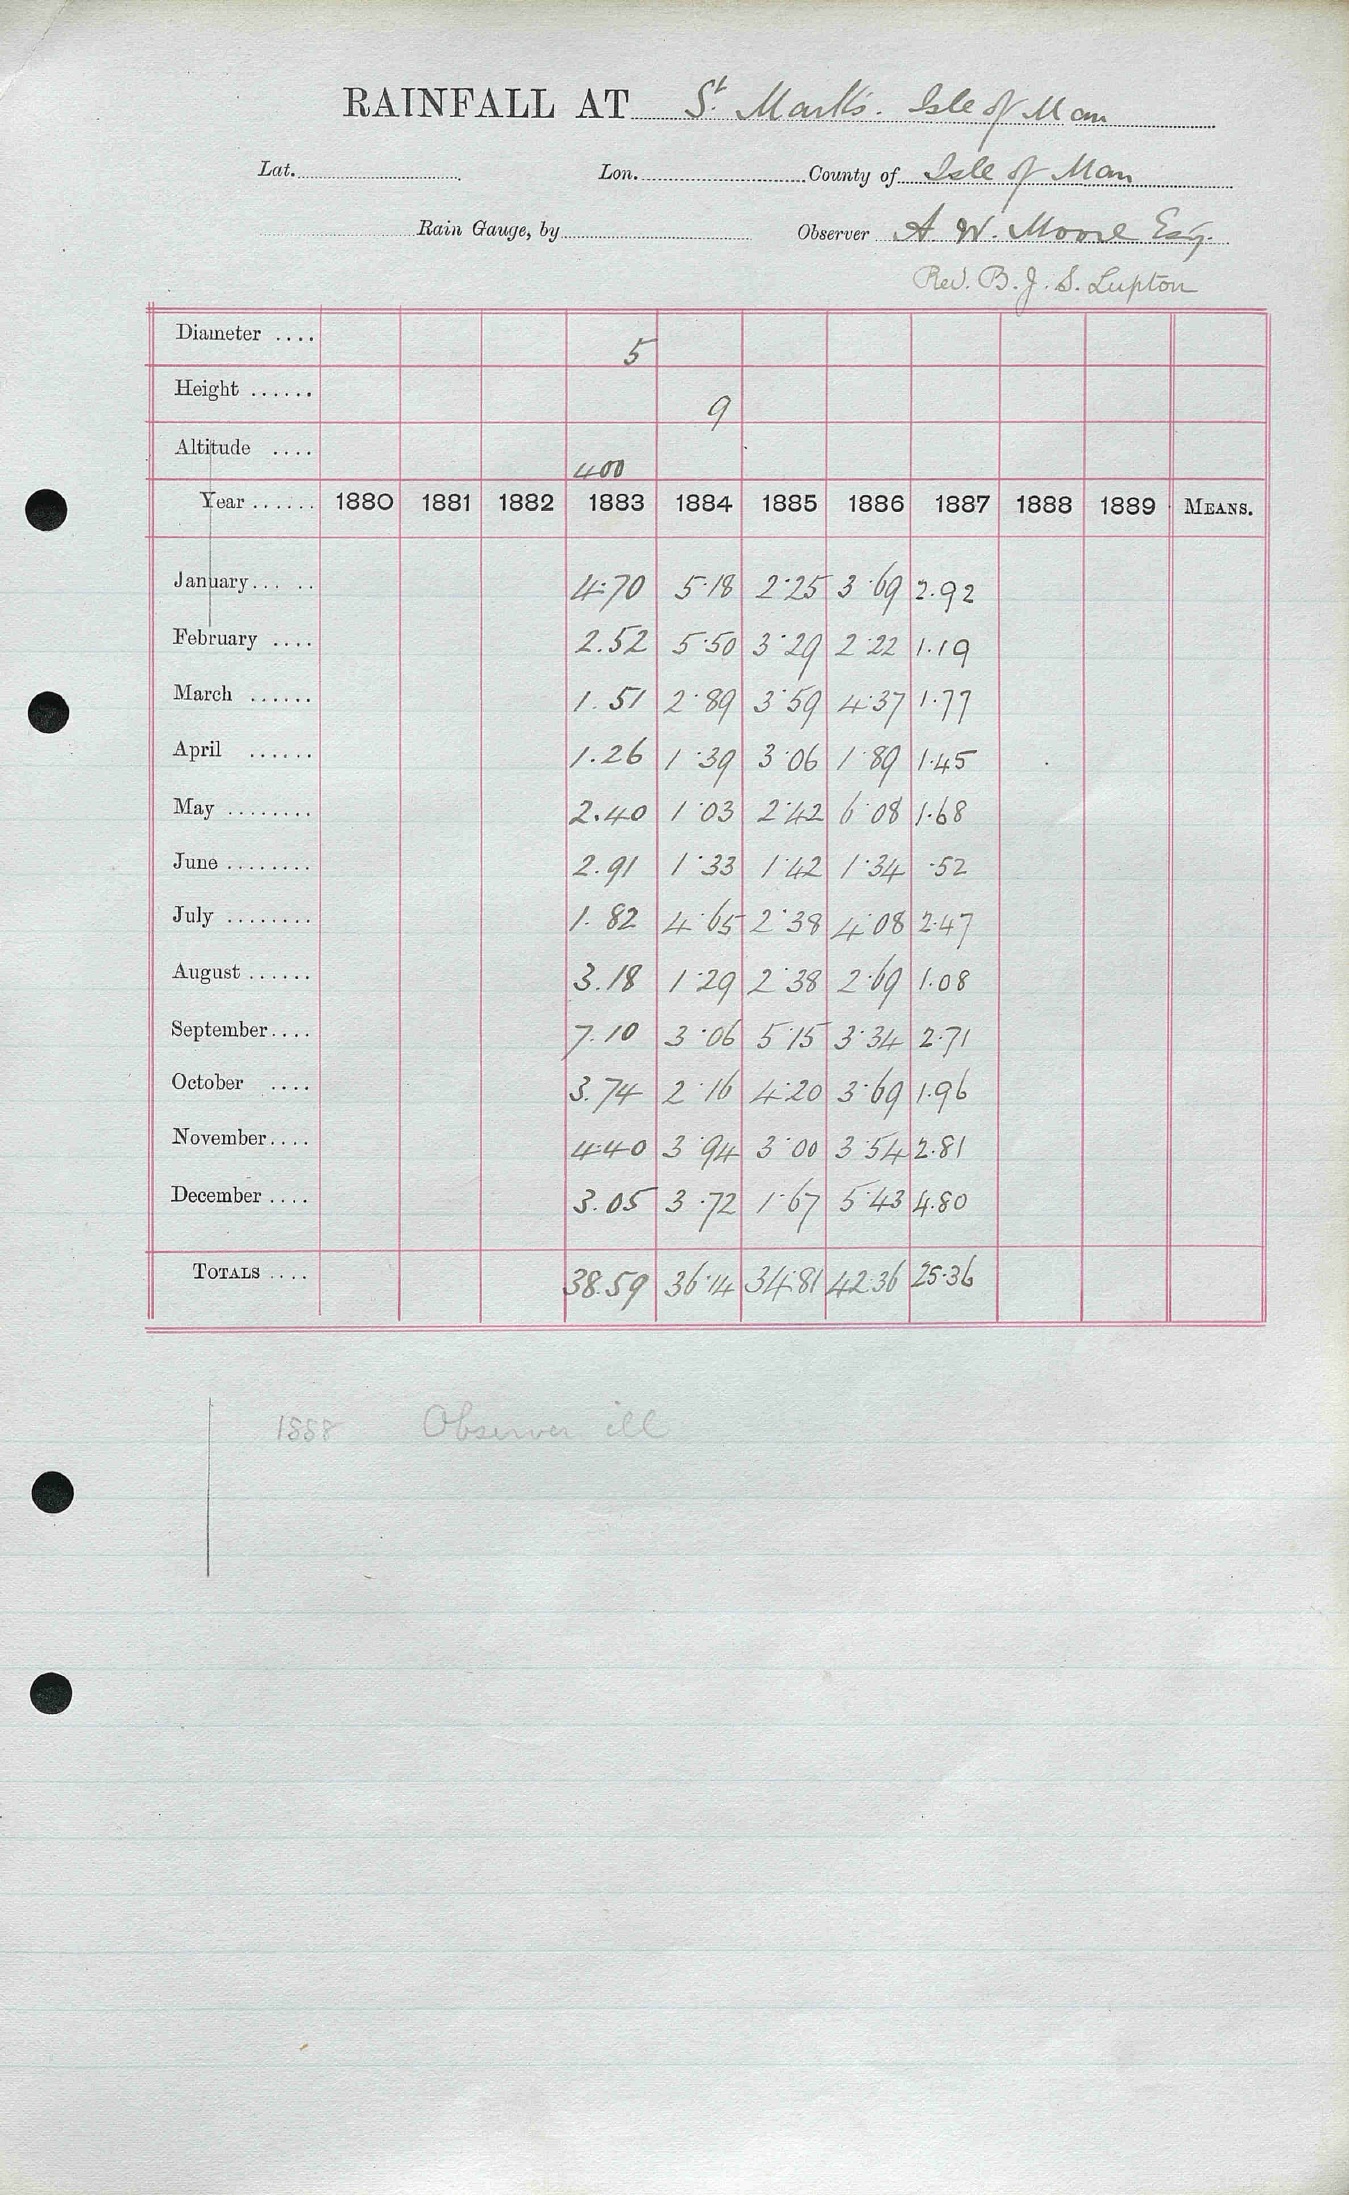 RAINFALL AT St. Mark's. Isle of Man
Lat. Lon. County of Isle of Man
Rain Gauge, by Observer A. W. Moore Esq.
Rev. B. J. S. Lupton
Diameter .... 5
Height ...... 9
Altitude .... 400
Year ...... 1880 1881 1882 1883 1884 1885 1886 1887 1888 1889 MEANS.
January... .. 4.70 5.18 2.25 3.69 2.92
February .... 2.52 5.50 3.29 2.22 1.19
March ...... 1.51 2.89 3.59 4.37 1.77
April ...... 1.26 1.39 3.06 1.89 1.45
May ........ 2.40 1.03 2.42 6.08 1.68
June ........ 2.91 1.33 1.42 1.34 .52
July ........ 1.82 4.65 2.38 4.08 2.47
August ...... 3.18 1.29 2.38 2.69 1.08
September.... 7.10 3.06 5.15 3.34 2.71
October .... 3.74 2.16 4.20 3.69 1.96
November.... 4.40 3.94 3.00 3.54 2.81
December .... 3.05 3.72 1.67 5.43 4.80
TOTALS .... 38.59 36.14 34.81 42.36 25.36
1888 Observer ill